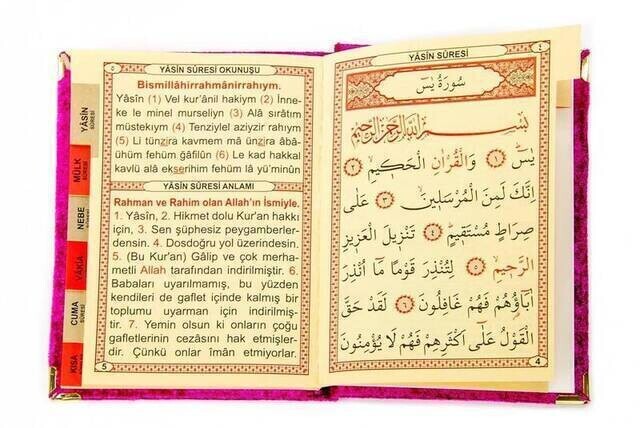 YÂSİN SÛRESİ OKUNUŞU
Bismillâhirrahmânirrahıym.
Yâsîn (1) Vel kur'ânil hakiym (2) İnne-
ke le minel murseliyn (3) Alâ sırâtım
müstekıym (4) Tenziylel aziyzir rahiym
(5) Li tünzira kavmem mâ ünzira âbâ-
ühüm fehüm ğâfilûn (6) Le kad hakkal
kavlü alâ ekserihim fehüm lâ yü'minûn
YÂSİN SÛRESİ ANLAMI
Rahman ve Rahim olan Allah'ın İsmiyle.
1. Yâsîn, 2. Hikmet dolu Kur'an hakkı
için, 3. Sen şüphesiz peygamberler-
densin. 4. Dosdoğru yol üzerindesin.
5. (Bu Kur'an) Gâlip ve çok merha-
metli Allah tarafından indirilmiştir. 6.
Babaları uyarılmamış, bu yüzden
kendileri de gaflet içinde kalmış bir
toplumu uyarman için indirilmiş-
tir. 7. Yemin olsun ki onların çoğu
gafletlerinin cezasını hak etmişler-
dir. Çünkü onlar îmân etmiyorlar.
5
YÂSİN
SÛRESİ
MÜLK
SÛRESİ
NEBE
SÛRESİ
VÂKIA
CUMA
SÛRESİ
KISA
YÂSİN SÛRESİ
٤
سُورَةُ يٰسٓ
بِسْمِ اللّٰهِ الرَّحْمٰنِ الرَّحِيمِ
يٰسٓ ﴿١﴾ وَالْقُرْاٰنِ الْحَكِيمِ ﴿٢﴾
اِنَّكَ لَمِنَ الْمُرْسَلِينَ ﴿٣﴾ عَلٰى
صِرَاطٍ مُسْتَقِيمٍ ﴿٤﴾ تَنْزِيلَ الْعَزِيزِ
الرَّحِيمِ ﴿٥﴾ لِتُنْذِرَ قَوْمًا مَٓا اُنْذِرَ
اٰبَٓاؤُهُمْ فَهُمْ غَافِلُونَ ﴿٦﴾ لَقَدْ حَقَّ
الْقَوْلُ عَلٰٓى اَكْثَرِهِمْ فَهُمْ لَا يُؤْمِنُونَ
4